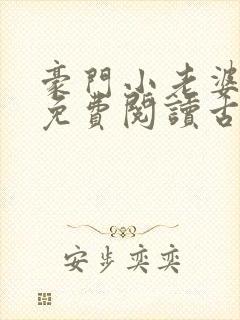 豪門小老婆
免費閱讀古
安步奕奕